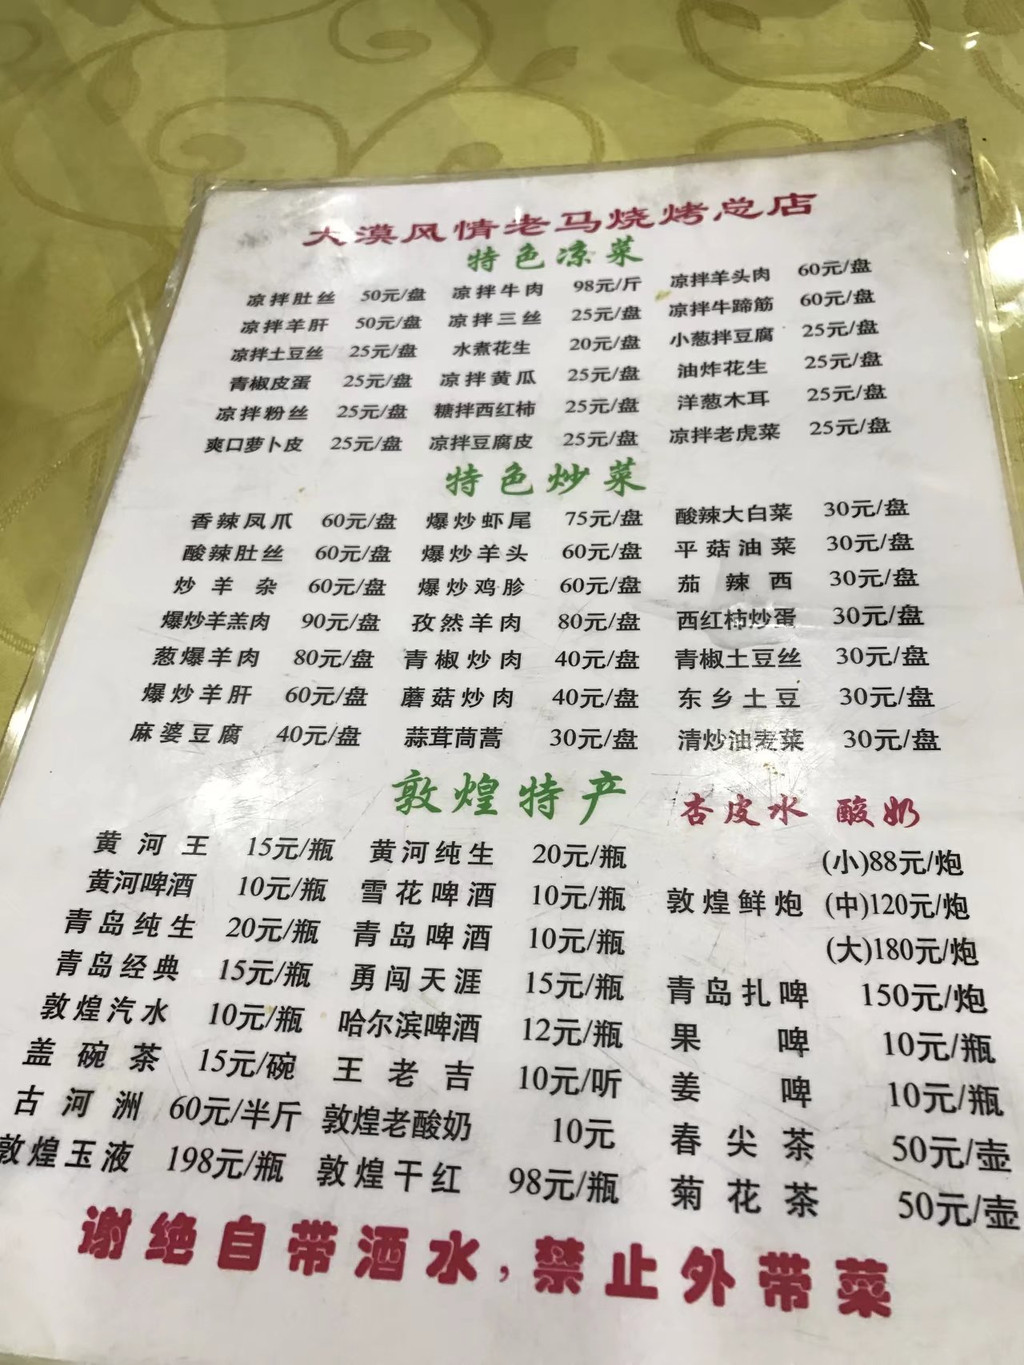 大漠风情老马烧烤总店
特色凉菜
凉拌肚丝 50元/盘 凉拌牛肉 98元/斤 凉拌羊头肉 60元/盘
凉拌羊肝 50元/盘 凉拌三丝 25元/盘 凉拌牛蹄筋 60元/盘
凉拌土豆丝 25元/盘 水煮花生 20元/盘 小葱拌豆腐 25元/盘
青椒皮蛋 25元/盘 凉拌黄瓜 25元/盘 油炸花生 25元/盘
凉拌粉丝 25元/盘 糖拌西红柿 25元/盘 洋葱木耳 25元/盘
爽口萝卜皮 25元/盘 凉拌豆腐皮 25元/盘 凉拌老虎菜 25元/盘
特色炒菜
香辣凤爪 60元/盘 爆炒虾尾 75元/盘 酸辣大白菜 30元/盘
酸辣肚丝 60元/盘 爆炒羊头 60元/盘 平菇油菜 30元/盘
炒羊杂 60元/盘 爆炒鸡胗 60元/盘 茄辣西 30元/盘
爆炒羊羔肉 90元/盘 孜然羊肉 80元/盘 西红柿炒蛋 30元/盘
葱爆羊肉 80元/盘 青椒炒肉 40元/盘 青椒土豆丝 30元/盘
爆炒羊肝 60元/盘 蘑菇炒肉 40元/盘 东乡土豆 30元/盘
麻婆豆腐 40元/盘 蒜茸茼蒿 30元/盘 清炒油麦菜 30元/盘
敦煌特产 杏皮水 酸奶
黄河王 15元/瓶 黄河纯生 20元/瓶 (小)88元/炮
黄河啤酒 10元/瓶 雪花啤酒 10元/瓶 敦煌鲜炮 (中)120元/炮
青岛纯生 20元/瓶 青岛啤酒 10元/瓶 (大)180元/炮
青岛经典 15元/瓶 勇闯天涯 15元/瓶 青岛扎啤 150元/炮
敦煌汽水 10元/瓶 哈尔滨啤酒 12元/瓶 果啤 10元/瓶
盖碗茶 15元/碗 王老吉 10元/听 姜啤 10元/瓶
古河洲 60元/半斤 敦煌老酸奶 10元 春尖茶 50元/壶
敦煌玉液 198元/瓶 敦煌干红 98元/瓶 菊花茶 50元/壶
谢绝自带酒水,禁止外带菜